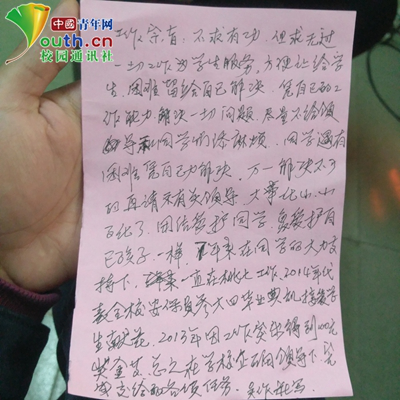 中國青年网
Youth.cn
校园通讯社
工作宗旨：不求有功，但求无过
一切工作为学生服务，方便让给学
生，困难留给自己解决，凭自己的工
作能力解决一切问题，尽量不给领
导和同学们添麻烦，同学遇有
困难凭自己力解决，万一解决不了
的再请示有关领导，大事化小，小
百化了，团结爱护同学，象爱护自
己孩子一样，在同学的大力支
持下，一直在桃七工作，2014年代
表全校安保员参大四毕业典礼接受学
生献花，2013年因工作突出得到100元
奖金，总之在学校正确领导下完
成交给的各项任务。